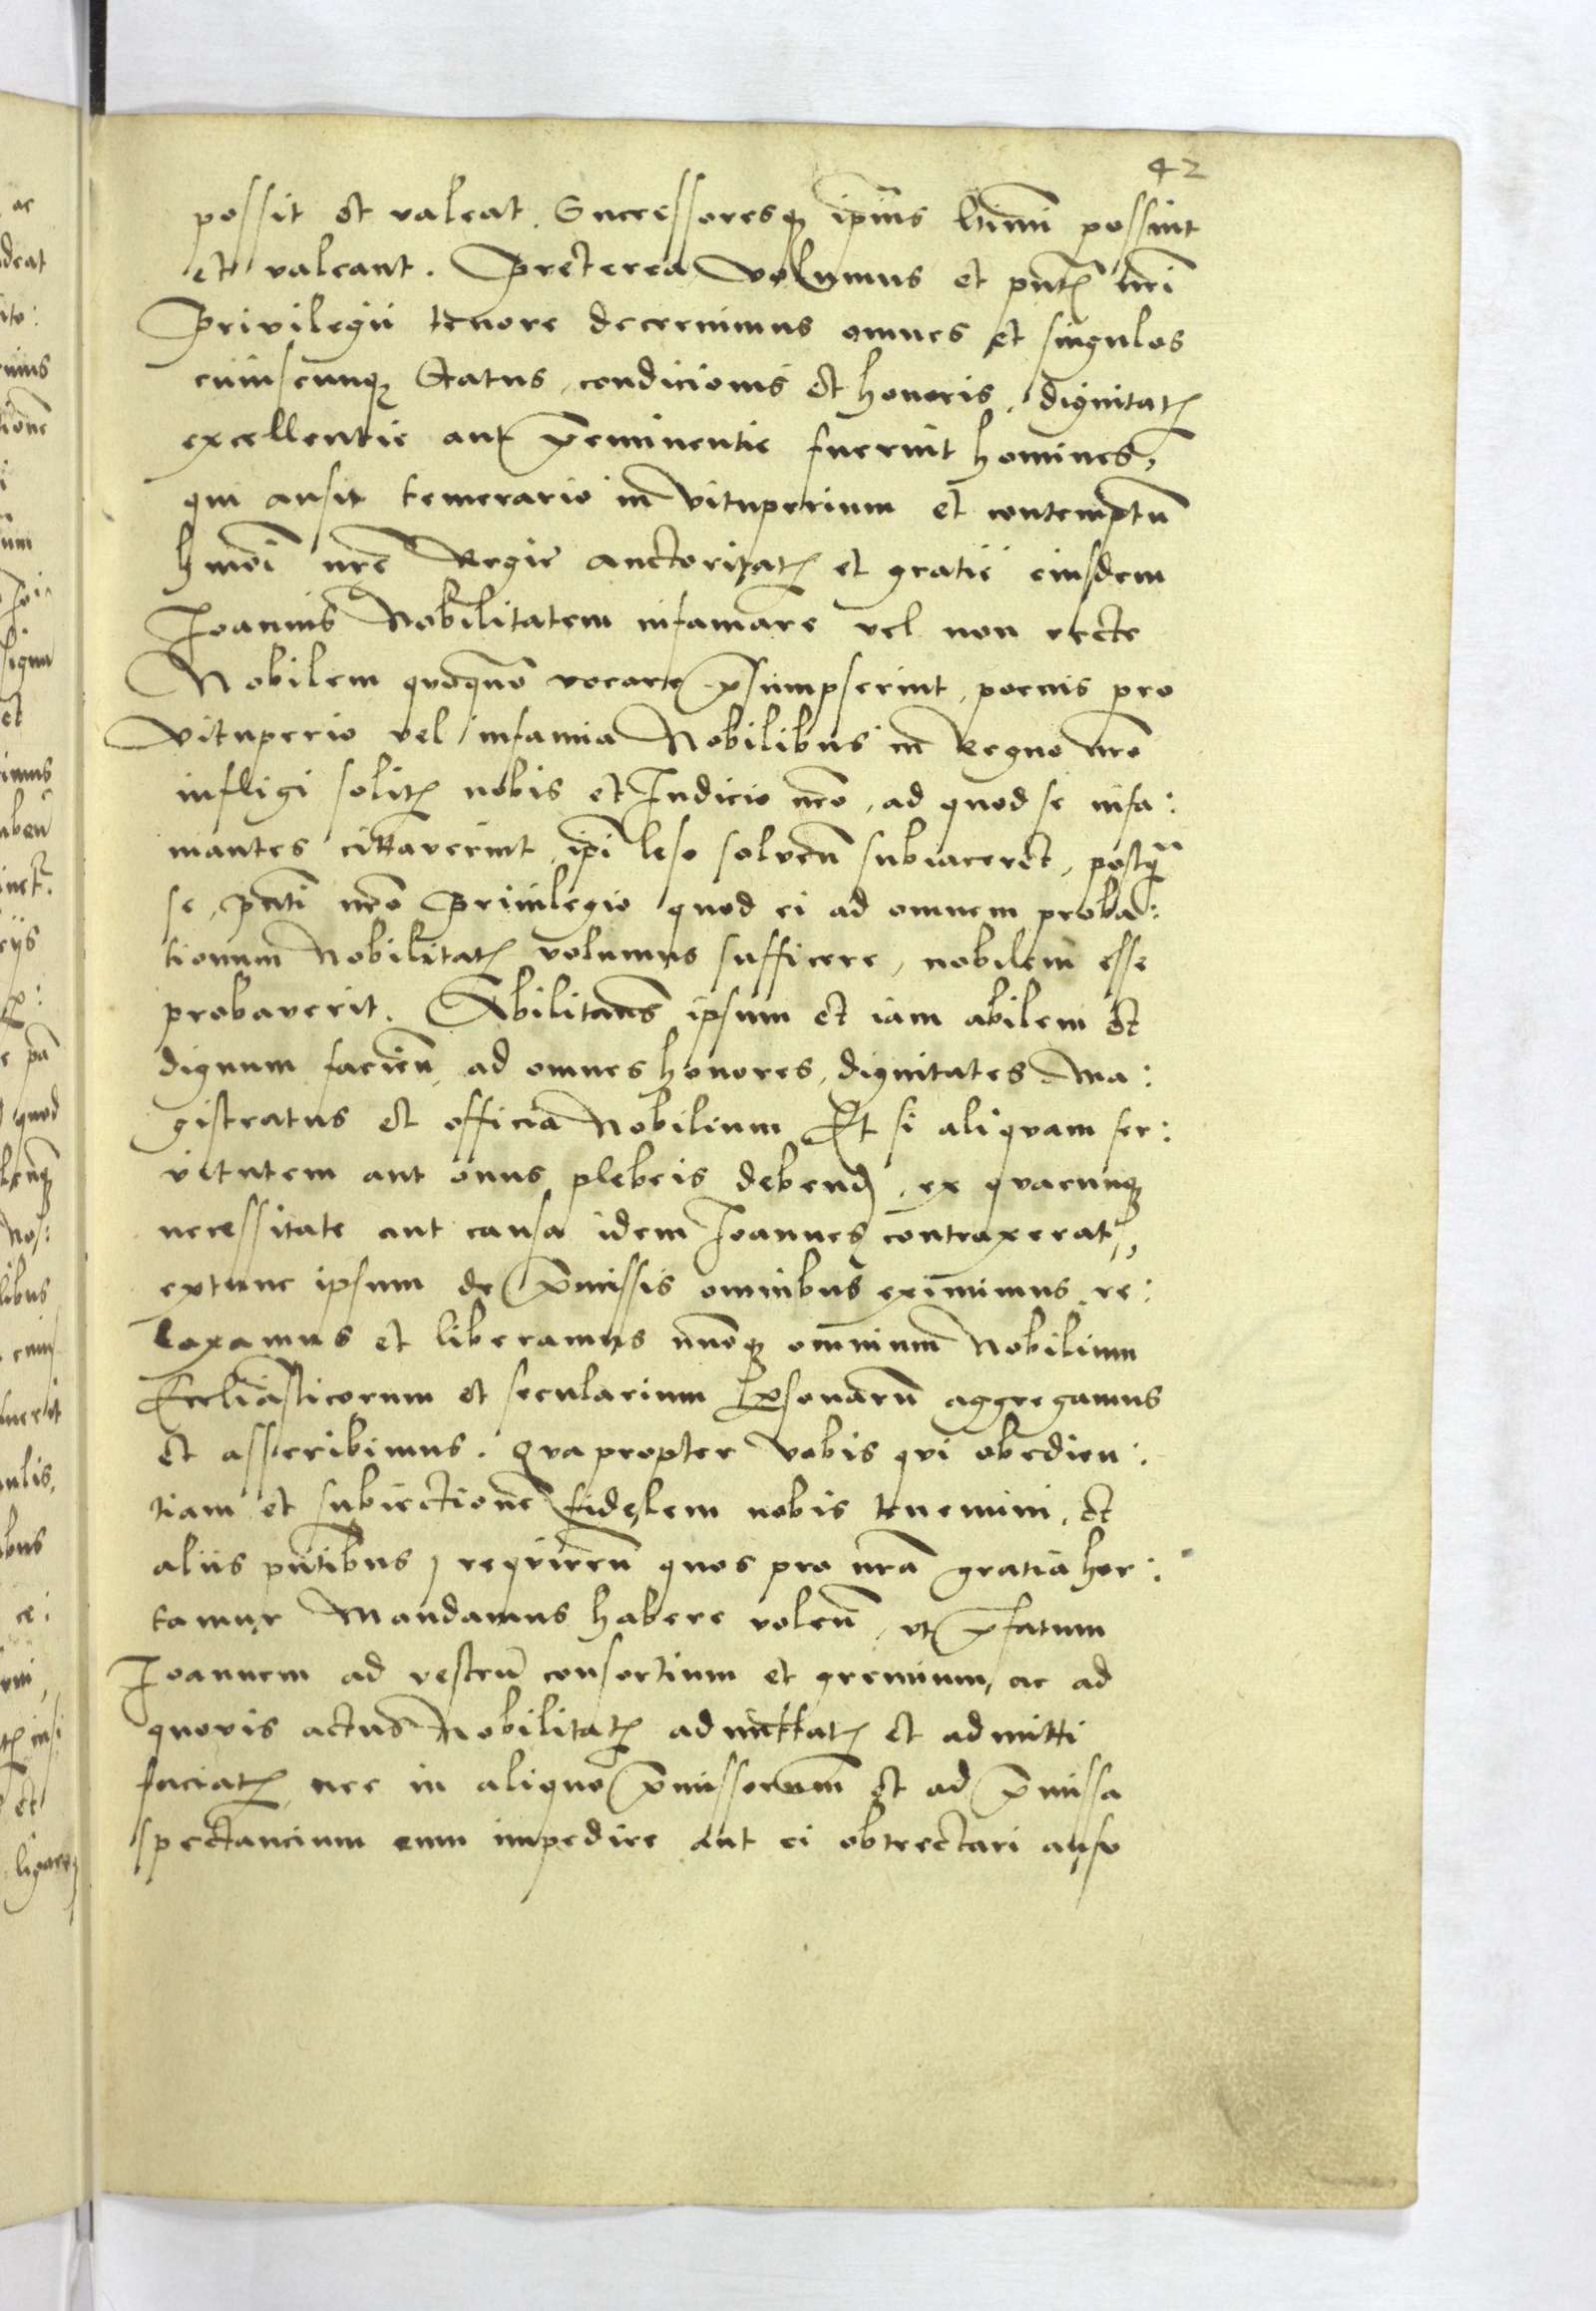 42
possit et valeat. Successoresq; ipius ltimi possint
et valeant. Preterea volumus et pnti nri
Privilegii tenore decernimus omnes et singulos
cuiuscunq; Status, condicionis et honoris, dignitatis
excellentie aut preminentie fuerint homines,
qui ausu temerario in vituperium et contemptu
hmoi nre Regie auctoritatis et gratie eiusdem
Joannis Nobilitatem infamare vel non recte
Nobilem quoquo vocare psumpserint, poenis pro
vituperio vel infamia Nobilibus in Regno nro
infligi solitis nobis et Iudicio nro, ad quod se infa:
mantes cittaverint, ipi leso solven subiacere et, postq
se, pnti nro Privilegio quod ei ad omnem proba:
tionum Nobilitatis volumus sufficere, nobilem esse
probaverit. Abilitans ipsum et iam abilem et
dignum facien ad omnes honores, dignitates Ma:
gistratus et officia Nobilium Et si aliquam ser:
vitutem aut onus plebeis debend, ex quacunq;
necessitate aut causa idem Joannes contraxerat,
extunc ipsum de pmissis omnibus eximimus, re:
laxamus et liberamus nuoq; omnium Nobilium
Eccliasticorum et secularium psonaru aggregamus
et asscribimus. Quapropter vobis qui obedien:
tiam et subiectione fidelem nobis tenemini, et
aliis pntibus, requiren quos pro nra gratia hor:
tamur Mandamus habere volen, ut pfatum
Joannem ad vestru consortium et gremium, ac ad
quovis actus Nobilitatis admittatis et admitti
faciatis nec in aliquo pmissorum et ad pmissa
spectancium eum impedire aut ei obtrectari auso